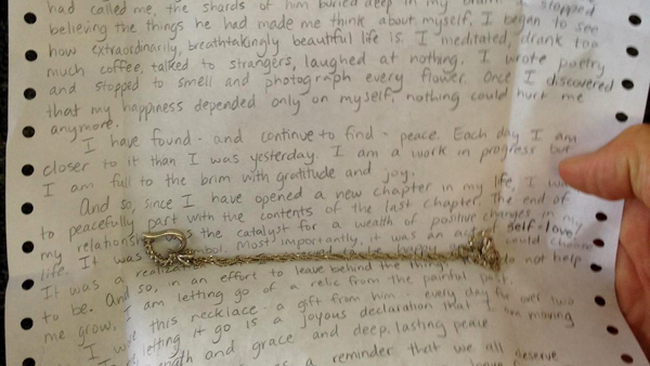 had called me, the shards of him buried deep in my brain. I stopped
believing the things he had made me think about myself. I began to see
how extraordinarily, breathtakingly beautiful life is. I meditated, drank too
much coffee, talked to strangers, laughed at nothing. I wrote poetry
and stopped to smell and photograph every flower. Once I discovered
that my happiness depended only on myself, nothing could hurt me
anymore.
I have found - and continue to find - peace. Each day I am
closer to it than I was yesterday. I am a work in progress but
I am full to the brim with gratitude and joy.
And so, since I have opened a new chapter in my life, I
to peacefully part with the contents of the last chapter. The end of
my relationship was the catalyst for a wealth of positive changes in my
life. It was symbol. Most importantly, it was an act of self-love.
It was a realization happy could choose
to be. And so, in an effort to leave behind the things do not help
me grow, I am letting go of a relic from the painful past.
I this necklace - a gift from him - every day for over two
letting it go is a joyous declaration that I am moving
and grace and deep, lasting peace.
a reminder that we all deserve